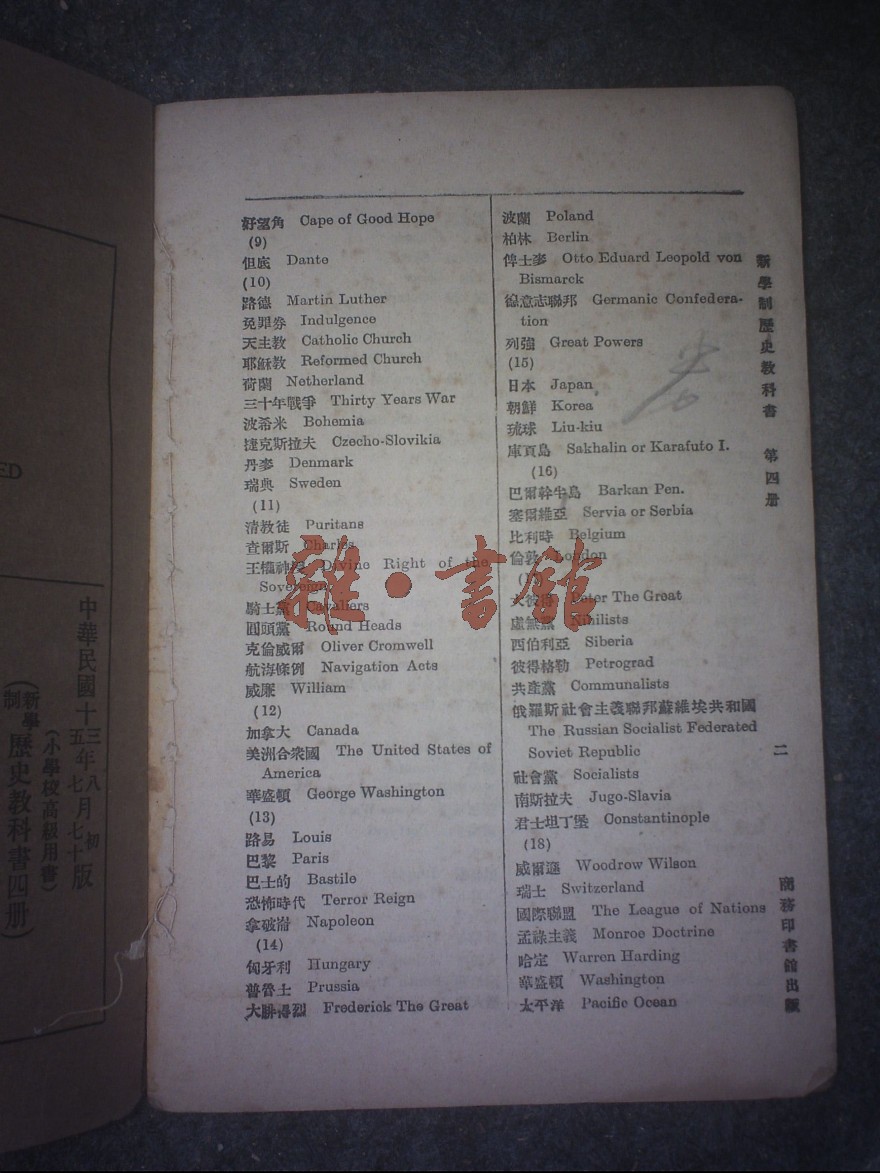 好望角 Cape of Good Hope
(9)
但底 Dante
(10)
路德 Martin Luther
免罪券 Indulgence
天主教 Catholic Church
耶穌教 Reformed Church
荷蘭 Netherland
三十年戰爭 Thirty Years War
波希米 Bohemia
捷克斯拉夫 Czecho-Slovikia
丹麥 Denmark
瑞典 Sweden
(11)
清教徒 Puritans
查爾斯 Charles
王權神授 Divine Right of the
Sovereign
騎士黨 Cavaliers
圓頭黨 Round Heads
克倫威爾 Oliver Cromwell
航海條例 Navigation Acts
威廉 William
(12)
加拿大 Canada
美洲合衆國 The United States of
America
華盛頓 George Washington
(13)
路易 Louis
巴黎 Paris
巴士的 Bastile
恐怖時代 Terror Reign
拿破崙 Napoleon
(14)
匈牙利 Hungary
普魯士 Prussia
大腓得烈 Frederick The Great
波蘭 Poland
柏林 Berlin
俾士麥 Otto Eduard Leopold von
Bismarck
德意志聯邦 Germanic Confedera-
tion
列強 Great Powers
(15)
日本 Japan
朝鮮 Korea
琉球 Liu-kiu
庫頁島 Sakhalin or Karafuto I.
(16)
巴爾幹半島 Barkan Pen.
塞爾維亞 Servia or Serbia
比利時 Belgium
倫敦 London
大彼得 Peter The Great
虛無黨 Nihilists
西伯利亞 Siberia
彼得格勒 Petrograd
共產黨 Communalists
俄羅斯社會主義聯邦蘇維埃共和國
The Russian Socialist Federated
Soviet Republic
社會黨 Socialists
南斯拉夫 Jugo-Slavia
君士坦丁堡 Constantinople
(18)
威爾遜 Woodrow Wilson
瑞士 Switzerland
國際聯盟 The League of Nations
孟祿主義 Monroe Doctrine
哈定 Warren Harding
華盛頓 Washington
太平洋 Pacific Ocean
新學制歷史教科書 第四册
二
商務印書館出版
雜·書館
中華民國十三年八月初版
五年七月七十版
(小學校高級用書)
(新學制歷史教科書四册)
ED